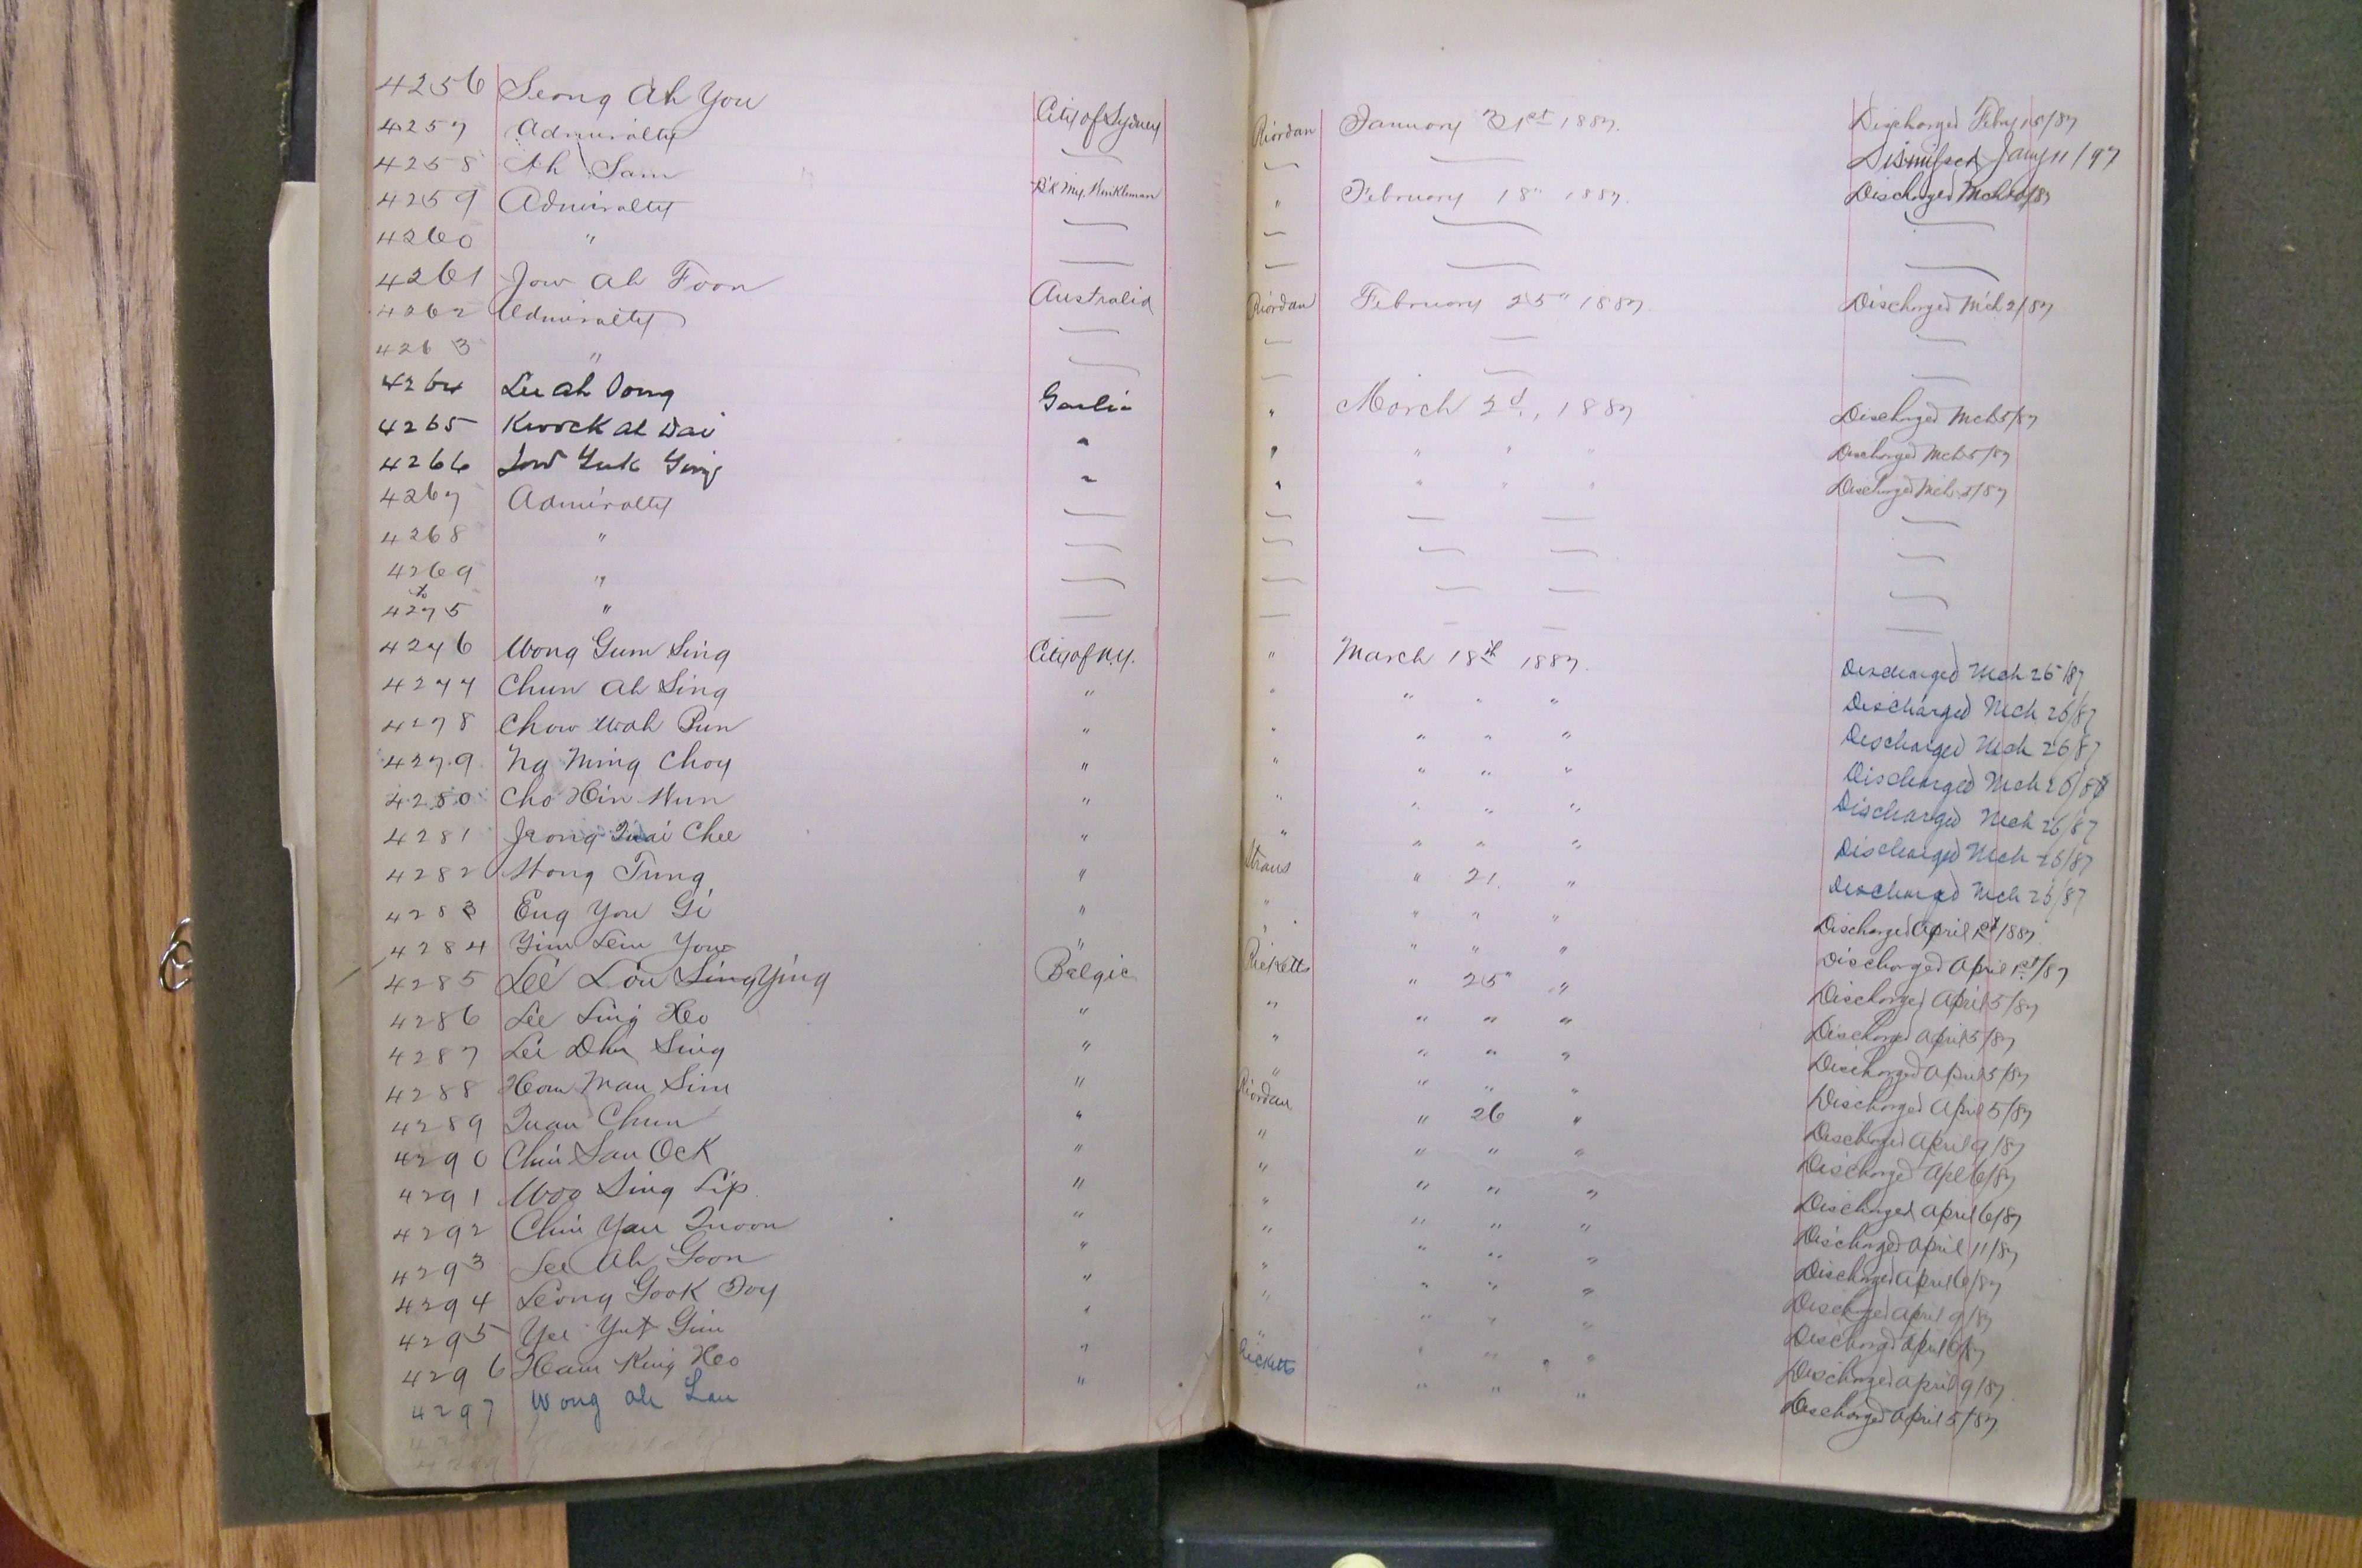 4256 Seong Ah You City of Sydney Riordan January 31st 1887. Discharged Feby 15/87
4257 Admiralty — — — Dismissed Jany 11/97
4258 Ah Sam B'k My. Winkleman " February 18" 1887. Discharged Mch 10/87
4259 Admiralty — — — —
4260 " — — — —
4261 Jow Ah Foon Australia Riordan February 25" 1887. Discharged Mch 2/87
4262 Admiralty — — — —
4263 " — — — —
4264 Lee ah Dong Gaelic " March 2d., 1887 Discharged Mch 5/87
4265 Kwock ah Dai " " " " " Discharged Mch 5/87
4266 Low Yuk Ying " " " " " Discharged Mch 5/87
4267 Admiralty — — — — —
4268 " — — — — —
4269 " — — — — —
to
4275 " — — — — —
4276 Wong Gum Sing City of N.Y. " March 18th 1887. Discharged Mch 26/87
4277 Chun Ah Sing " " " " " Discharged Mch 26/87
4278 Chow Wah Pun " " " " " Discharged Mch 26/87
4279 Ng Ming Choy " " " " " Discharged Mch 26/87
4280 Cho Hin Wun " " " " " Discharged Mch 26/87
4281 Jeong Quai Chee " " " " " Discharged Mch 26/87
4282 Hong Tung " Straus " 21. " Discharged Mch 26/87
4283 Eug You Gi " " " " " Discharged April 1st/1887
4284 Yim Lein You " " " " " Discharged April 1st/87
4285 Lee Lou Sing Ying Belgic Ricketts " 25" " Discharged April 5/87
4286 Lee Sing Heo " " " " " Discharged April 5/87
4287 Lee Dhu Sing " " " " " Discharged April 5/87
4288 Hom Man Sim " " " " " Discharged April 5/87
4289 Quan Chun " Riordan " 26 " Discharged April 9/87
4290 Chin San Ock " " " " " Discharged Apl 6/87
4291 Woo Sing Lip " " " " " Discharged April 6/87
4292 Chin Yau Quoon " " " " " Discharged April 11/87
4293 Lee Ah Goon " " " " " Discharged April 6/87
4294 Leong Gook Toy " " " " " Discharged April 9/87
4295 Yee Yut Gim " " " " " Discharged April 6/87
4296 Ham King Heo " " " " " Discharged April 9/87
4297 Wong ah Lan " Ricketts " " " Discharged April 5/87